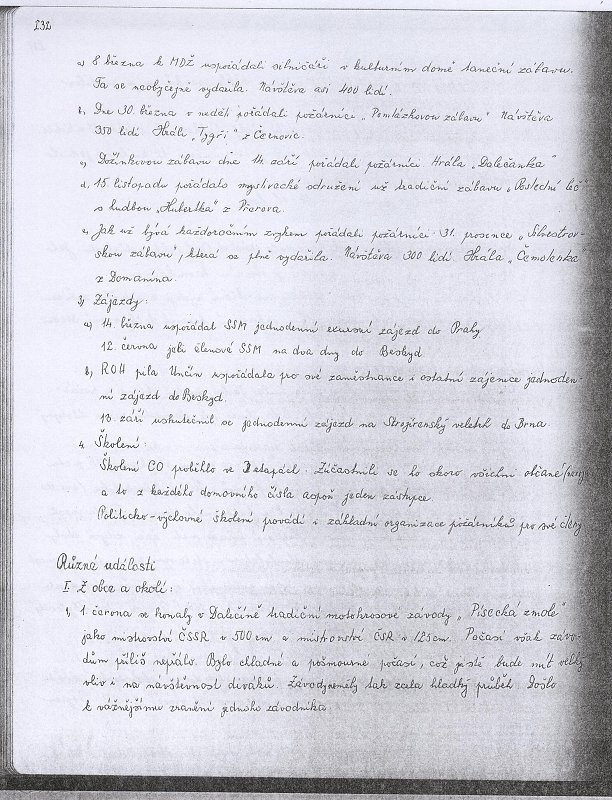 232
a) 8 března k MDŽ uspořádali silničáři v kulturním domě taneční zábavu.
Ta se neobyčejně vydařila. Návštěva asi 400 lidí.
b) Dne 30. března v neděli pořádali požárníci „Pomlázkovou zábavu" Návštěva
350 lidí Hráli „Tygři" z Černovic.
c) Dožínkovou zábavu dne 14. září pořádali požárníci Hrála „Dalečanka"
d) 15. listopadu pořádalo myslivecké sdružení už tradiční zábavu „Poslední leč
s hudbou „Hubertka" z
e) Jak už bývá každoročním zvykem pořádali požárníci 31. prosince „Silvestrov-
skou zábavu", která se plně vydařila. Návštěva 300 lidí. Hrála
z Domanína.
3) Zájezdy:
a) 14. března uspořádal SSM jednodenní exkursní zájezd do Prahy
12. června jeli členové SSM na dva dny do Beskyd
b) ROH pila Unčín uspořádala pro své zaměstnance i ostatní zájemce jednoden-
ní zájezd do Beskyd.
13. září uskutečnil se jednodenní zájezd na Strojírenský veletrh do Brna.
4. Školení:
Školení CO proběhlo ve etapách. Zúčastnili se ho skoro všichni občané
a to z každého domovního čísla aspoň jeden zástupce
Politicko-výchovné školení provádí i základní organizace požárníků pro své členy
Různé události
I. Z obce a okolí:
1) 1 června se konaly v Dalečíně tradiční motokrosové závody „Písecká zmole"
jako mistrovství ČSSR v 500 cm a mistrovství ČSR v 125 cm. Počasí však závo-
dům příliš nepřálo. Bylo chladné a pošmourné počasí, což jistě bude mít velký
vliv i na návštěvnost diváků. Závody neměly tak zcela hladký průběh. Došlo
k vážnějšímu zranění jednoho závodníka.